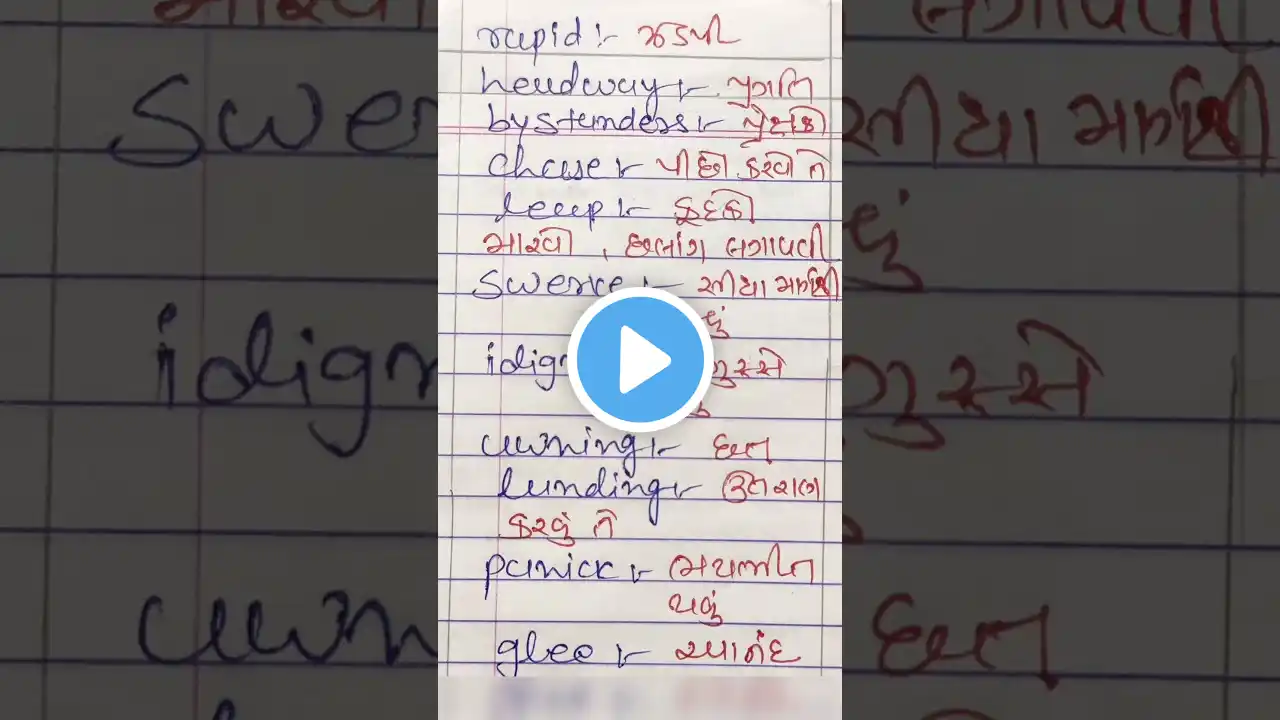 rapid :- ઝડપી
headway :- પ્રગતિ
bystanders :- પ્રેક્ષકો
chase :- પીછો કરવો તે
leap :- કૂદકો
મારવો , છલાંગ લગાવવી
swerve :- સીધા માર્ગથી
idign ગુસ્સે
awning :- છત
landing :- ઉતરાણ
કરવું તે
panick :- ભયભીત
થવું
glee :- આનંદ